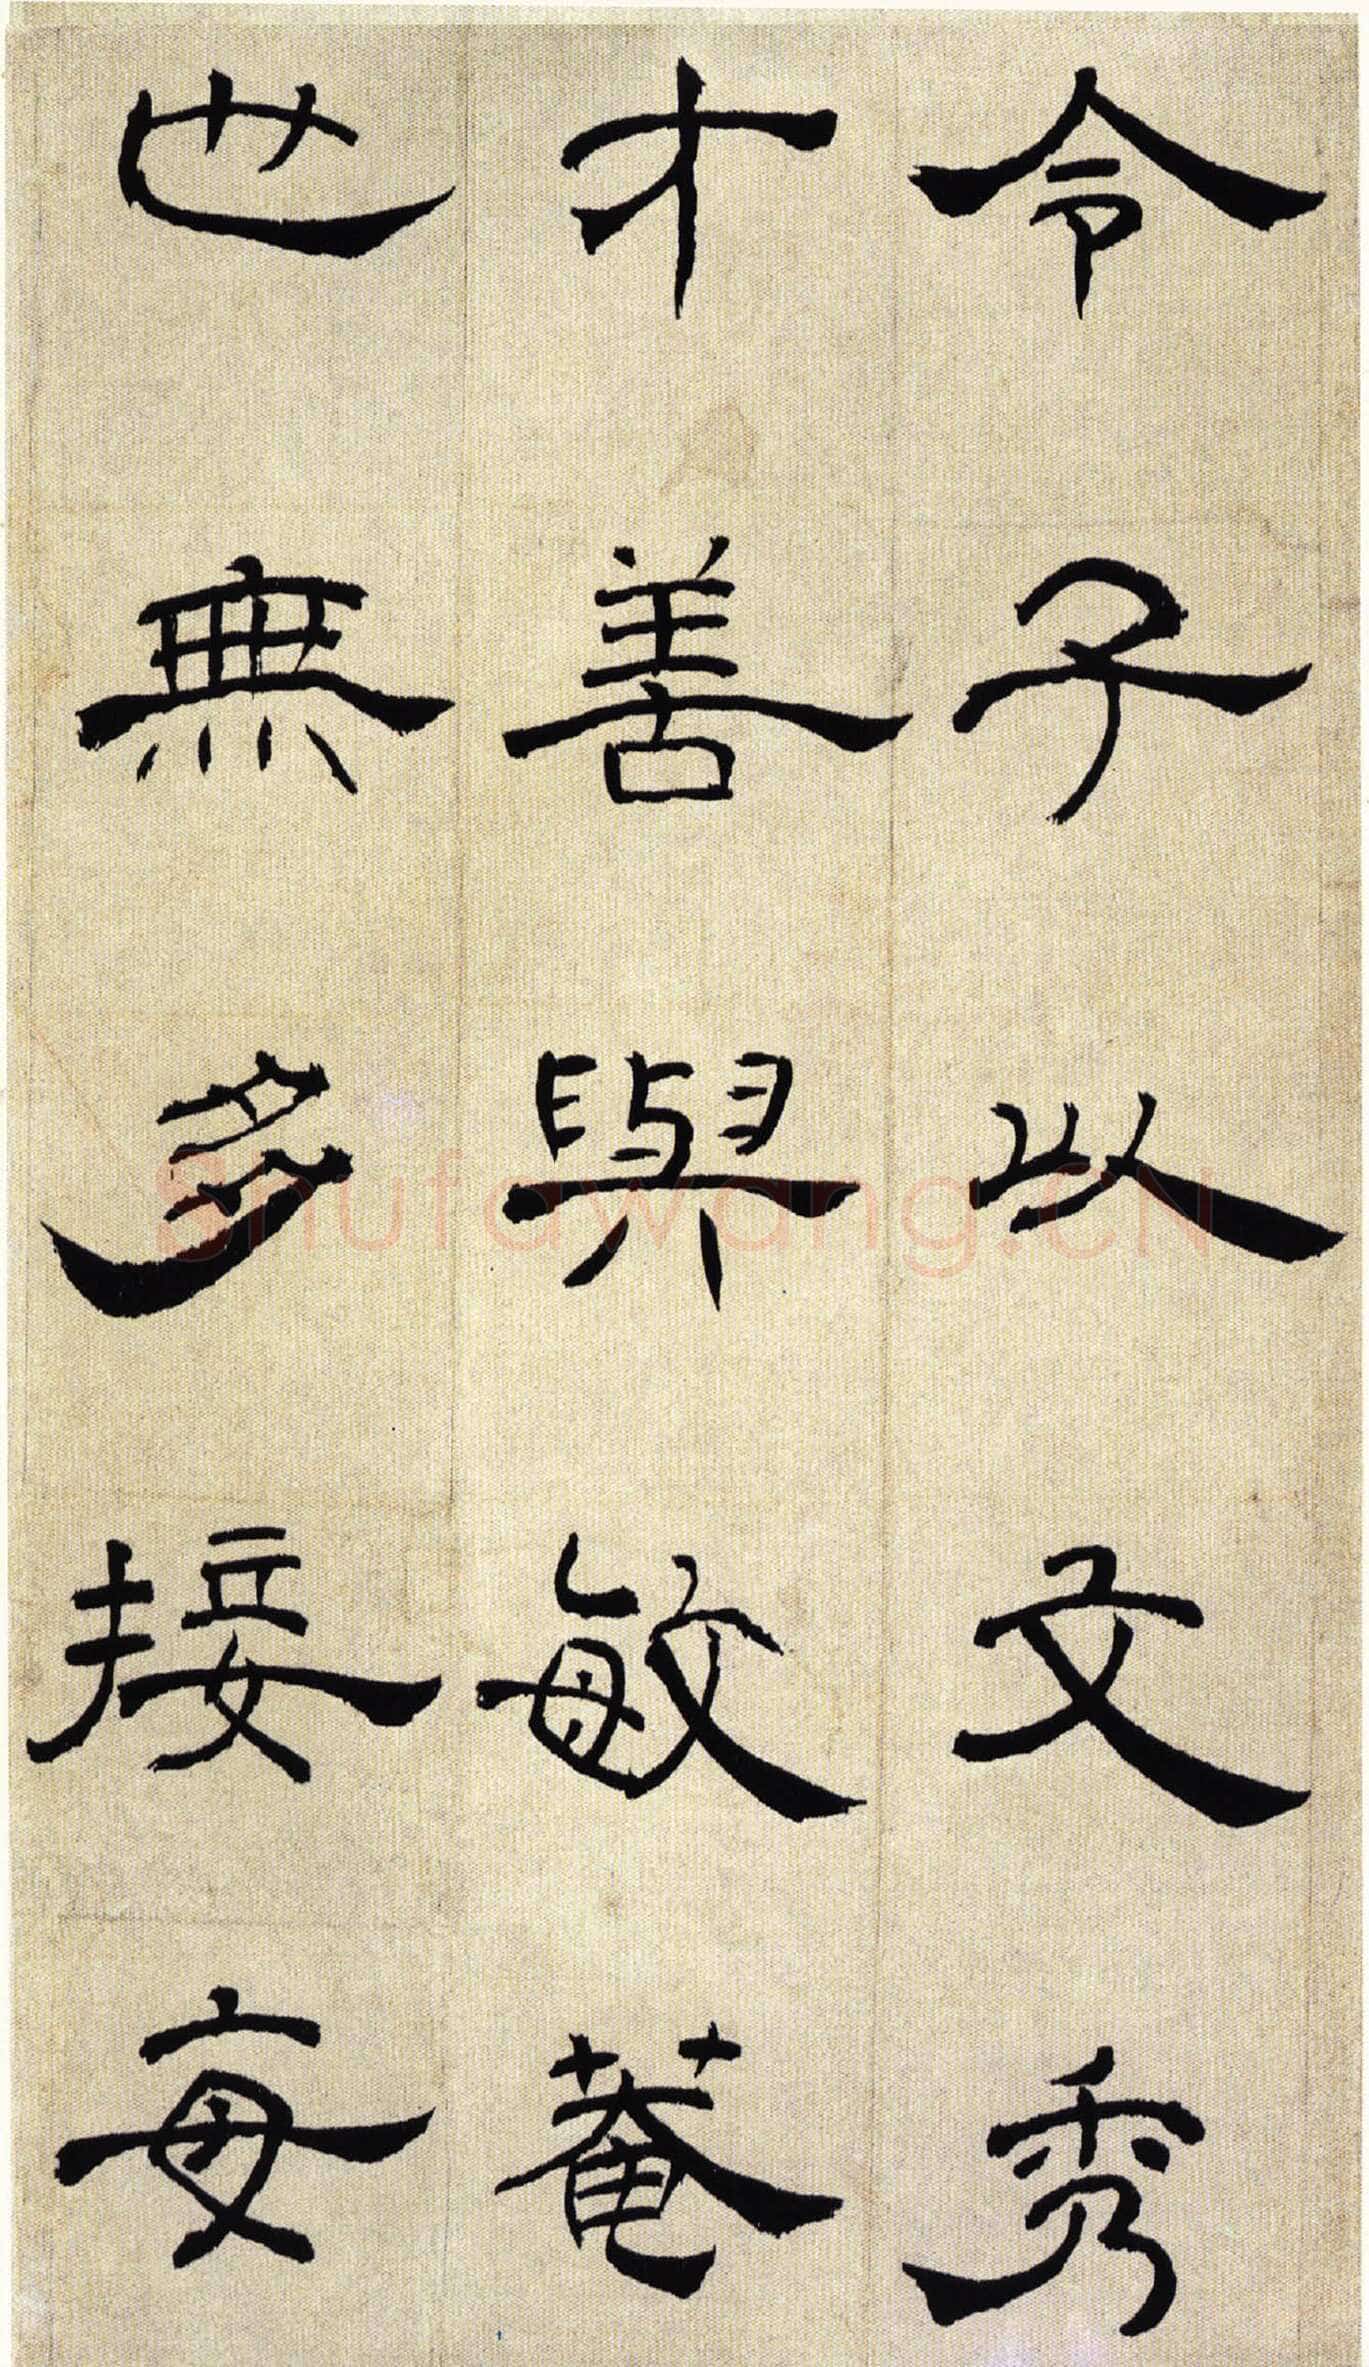 令子以文秀
才善與敏菴
世無多接每
Shufawang.CN